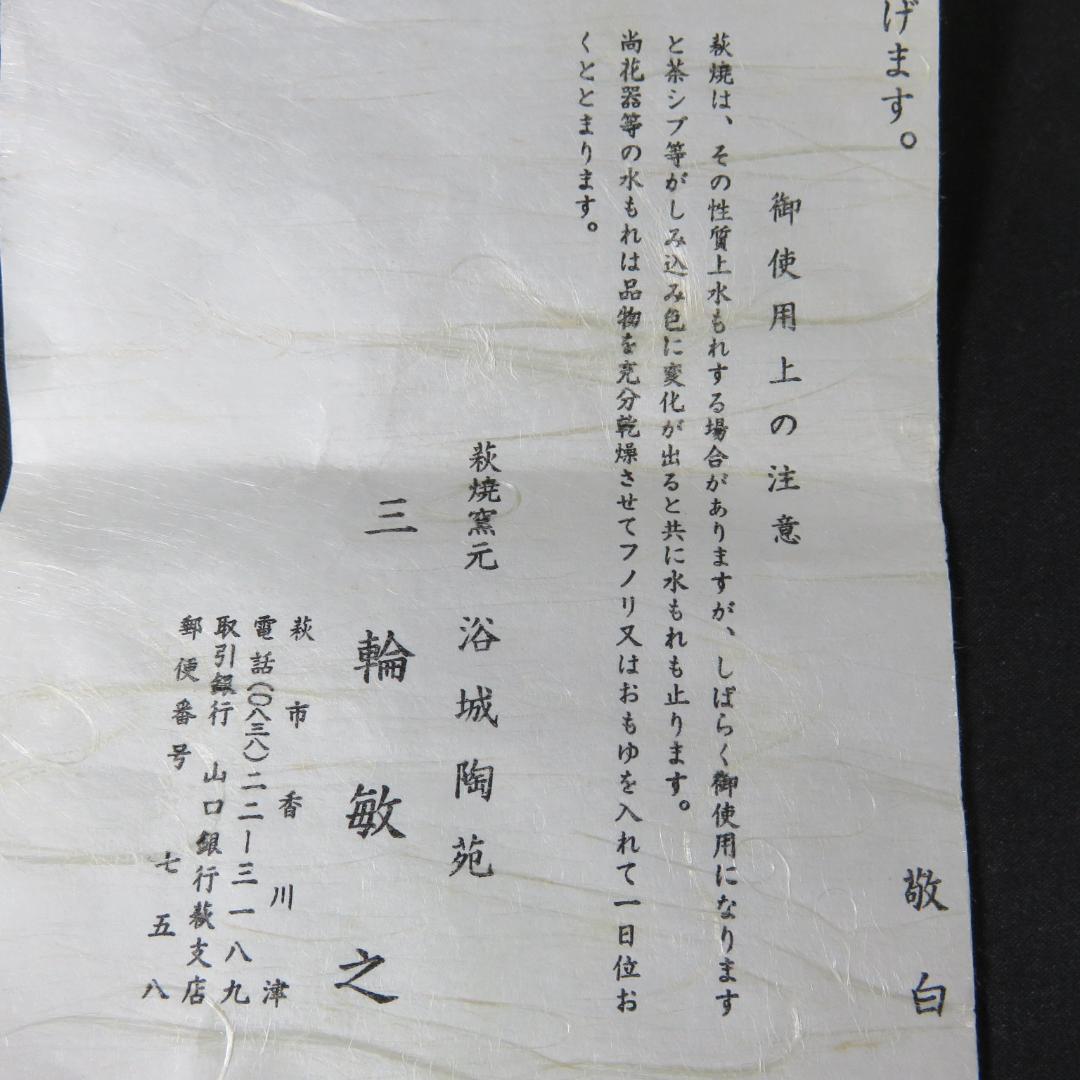 げます。
敬白
御使用上の注意
萩焼は、その性質上水もれする場合がありますが、しばらく御使用になります
と茶シブ等がしみ込み色に変化が出ると共に水もれも止ります。
尚花器等の水もれは品物を充分乾燥させてフノリ又はおもゆを入れて一日位お
くととまります。
萩焼窯元 浴城陶苑
三輪敏之
萩市香川津
電話(〇八三八)二二ー三一八九
取引銀行 山口銀行萩支店
郵便番号 七五八